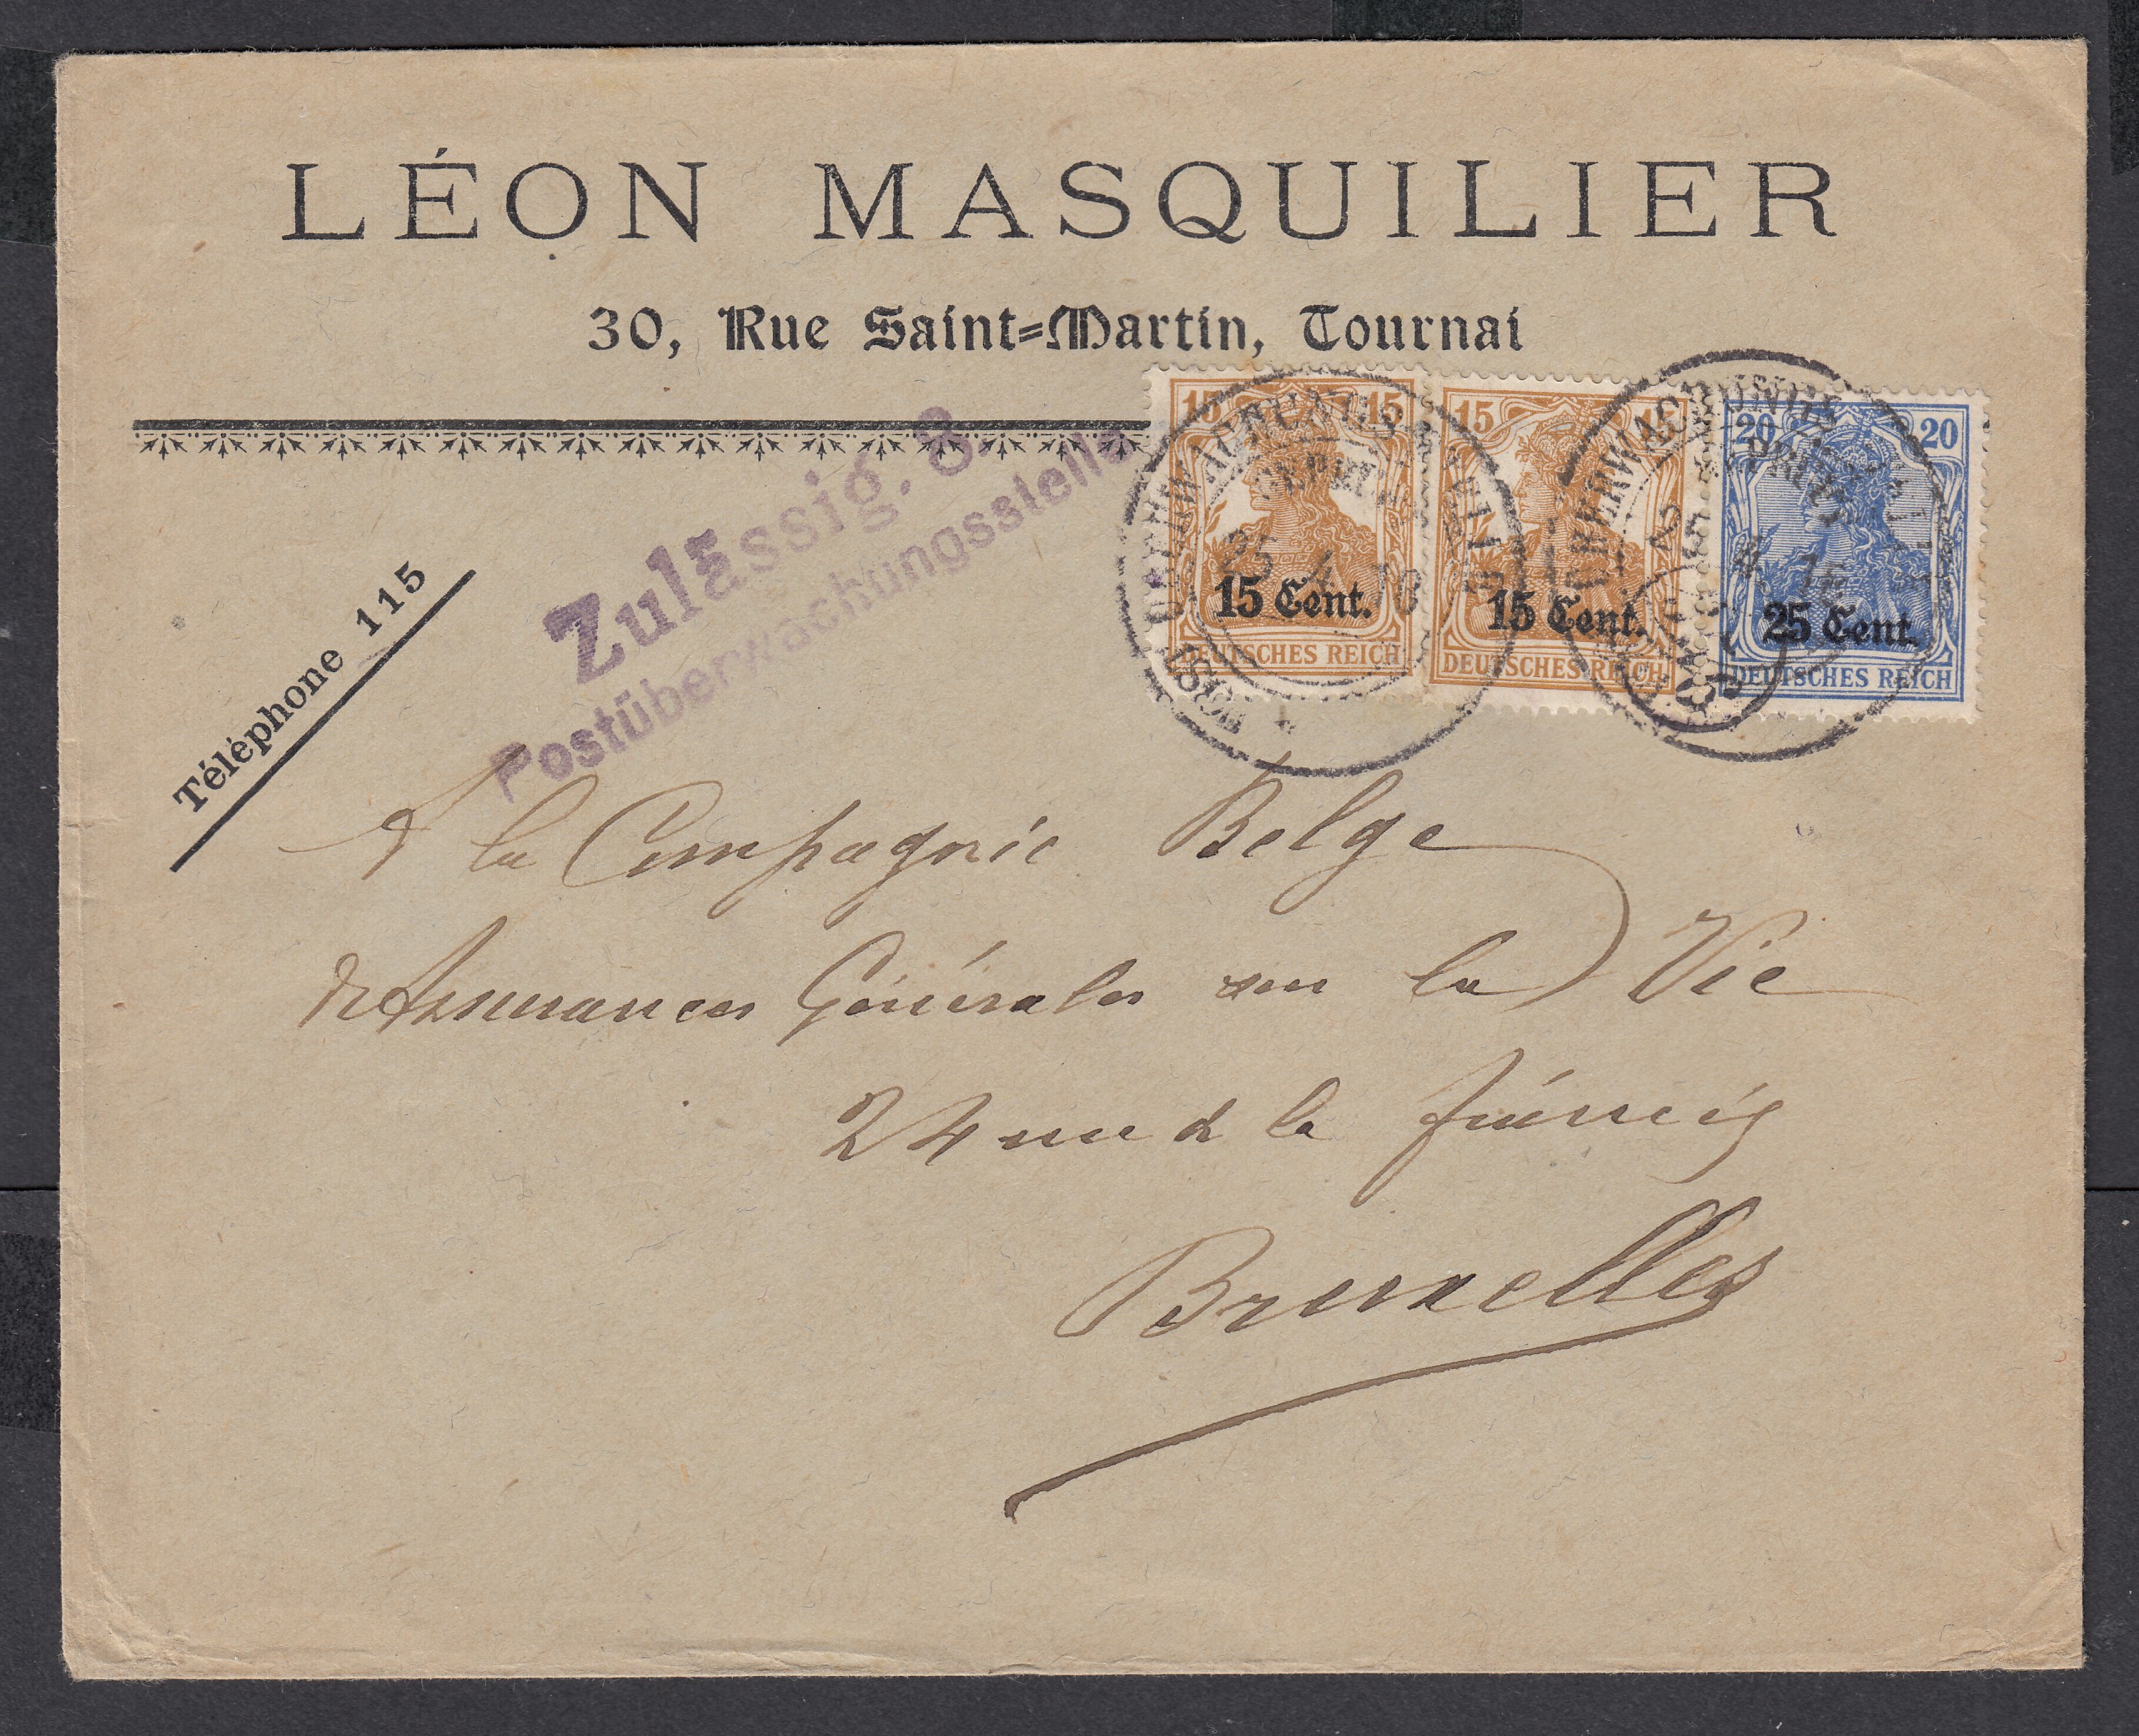 LÉON MASQUILIER
30, Rue Saint-Martin, Tournai
Téléphone 115
Zulässig. 8.
Postüberwachungsstelle
15 15
15 Cent.
DEUTSCHES REICH
15 15
15 Cent.
DEUTSCHES REICH
20 20
25 Cent.
DEUTSCHES REICH
GEPRÜFT
25 4 18
A la Compagnie Belge
d'Assurances Générales sur la Vie
24 rue de la
Bruxelles